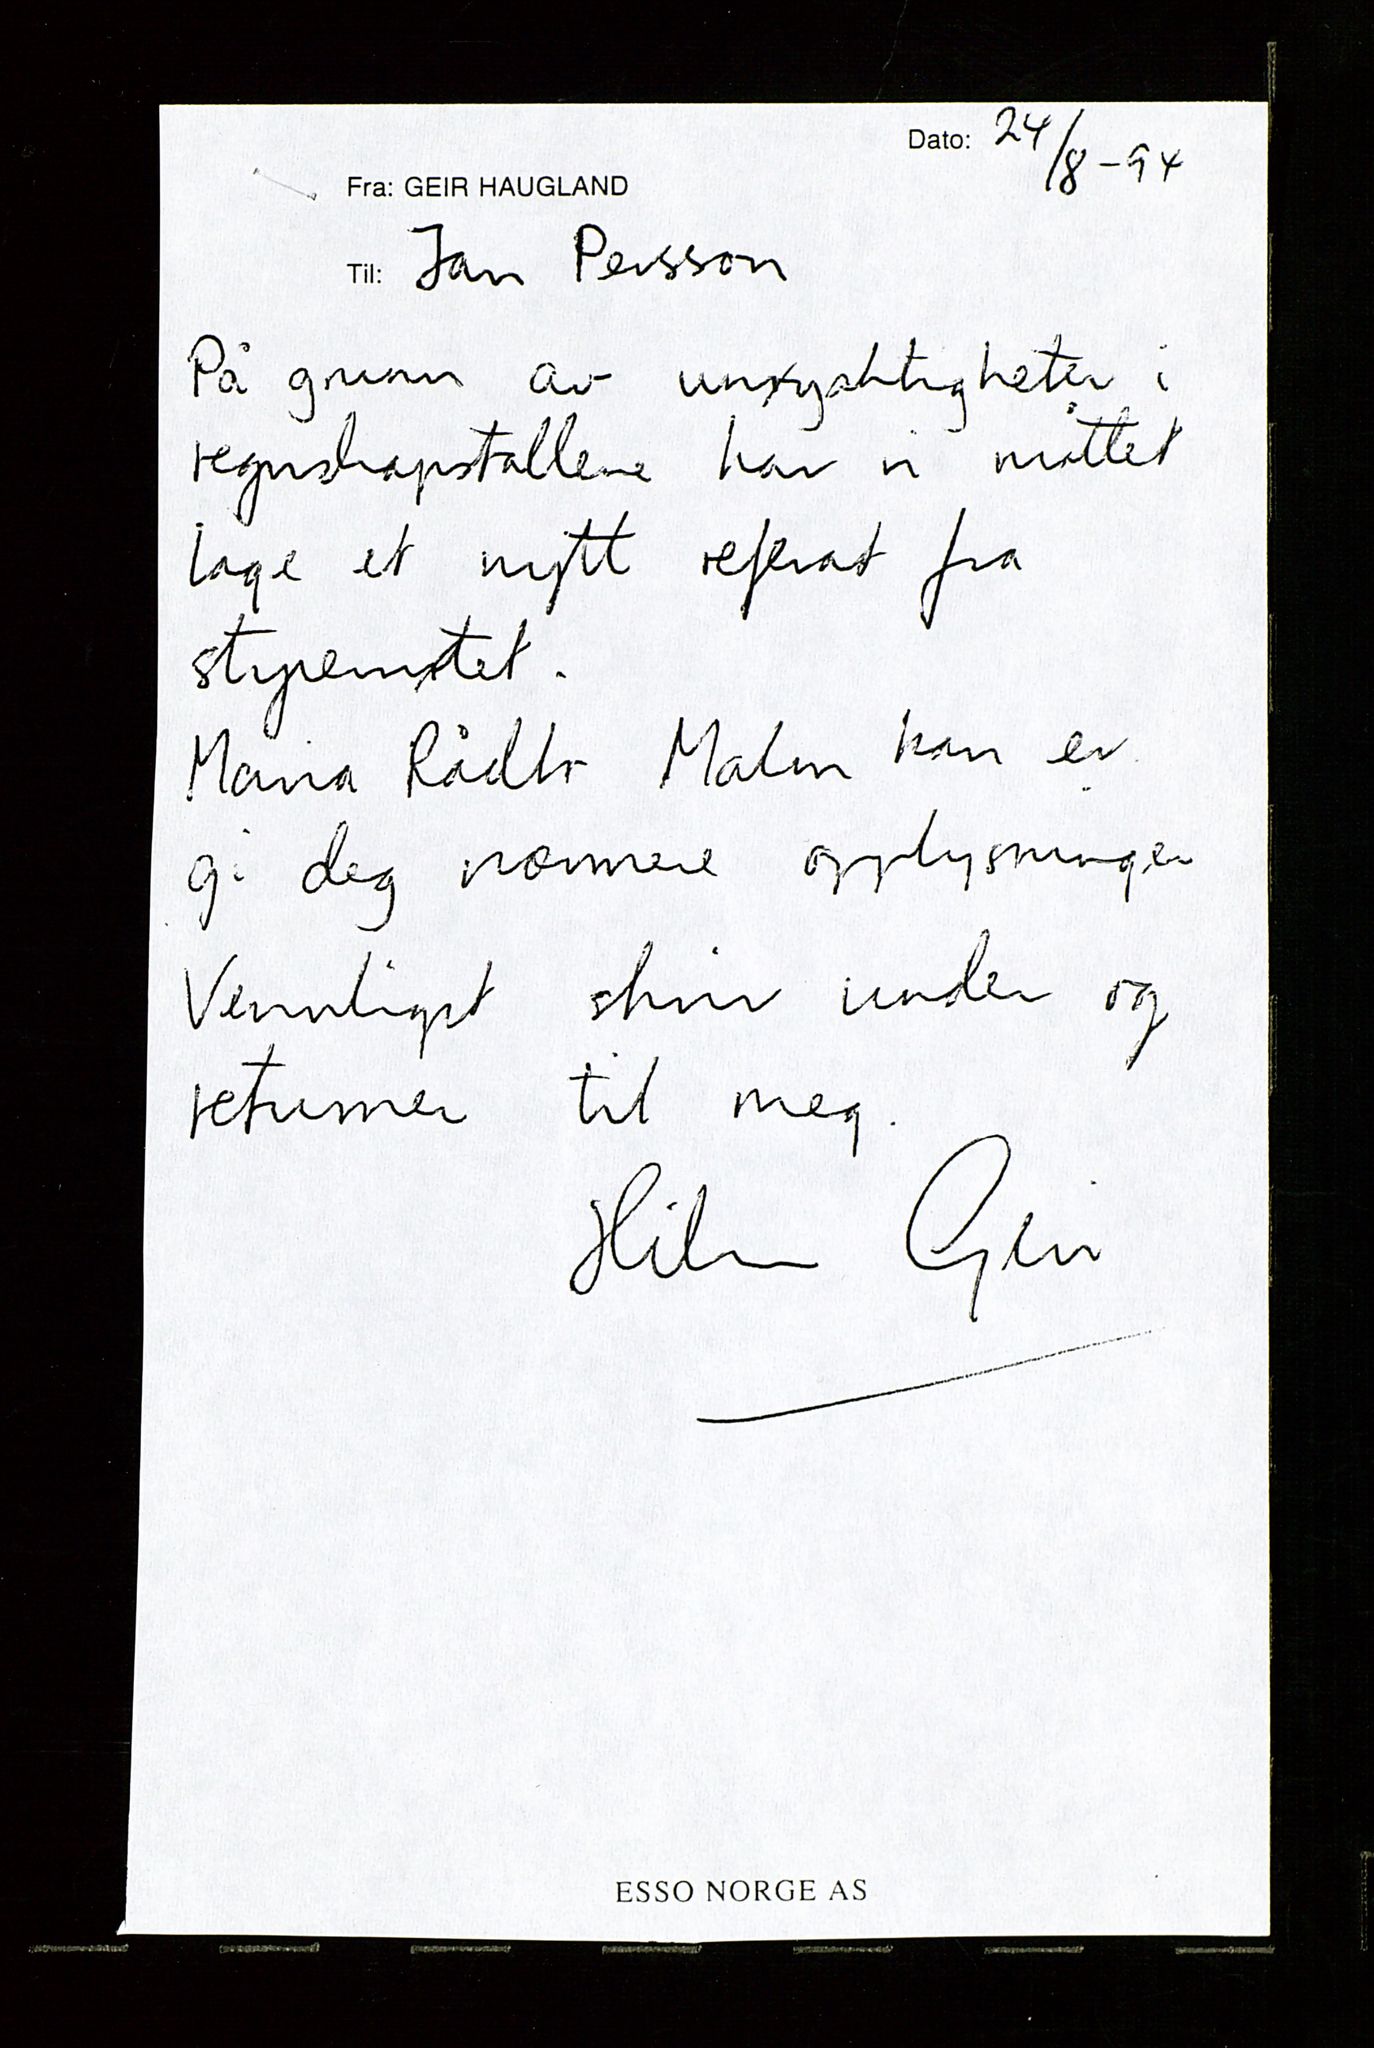 Dato: 24/8-94
Fra: GEIR HAUGLAND
Til: Jan Persson
På grunn av unøyaktigheter i
regnskapstallene har vi måttet
lage et nytt referat fra
styremøtet.
Maria Malm kan ev.
gi deg nærmere opplysninger
Vennligst skriv under og
returner til meg.
Hilsen Geir
ESSO NORGE AS